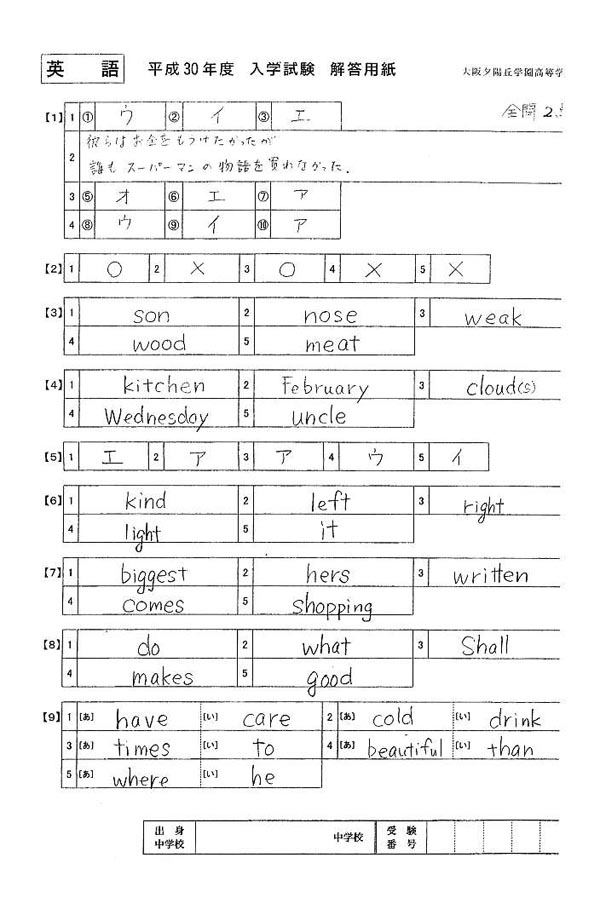 英 語 平成30年度 入学試験 解答用紙 大阪夕陽丘学園高等学
全問 2
【1】 1 ① ウ ② イ ③ エ
2 彼らはお金をもうけたかったが
誰もスーパーマンの物語を買わなかった.
3 ⑤ オ ⑥ エ ⑦ ア
4 ⑧ ウ ⑨ イ ⑩ ア
【2】 1 ○ 2 × 3 ○ 4 × 5 ×
【3】 1 son 2 nose 3 weak
4 wood 5 meat
【4】 1 kitchen 2 February 3 cloud(s)
4 Wednesday 5 uncle
【5】 1 エ 2 ア 3 ア 4 ウ 5 イ
【6】 1 kind 2 left 3 right
4 light 5 it
【7】 1 biggest 2 hers 3 written
4 comes 5 shopping
【8】 1 do 2 what 3 Shall
4 makes 5 good
【9】 1 [あ] have [い] care 2 [あ] cold [い] drink
3 [あ] times [い] to 4 [あ] beautiful [い] than
5 [あ] where [い] he
出身中学校 中学校 受験番号